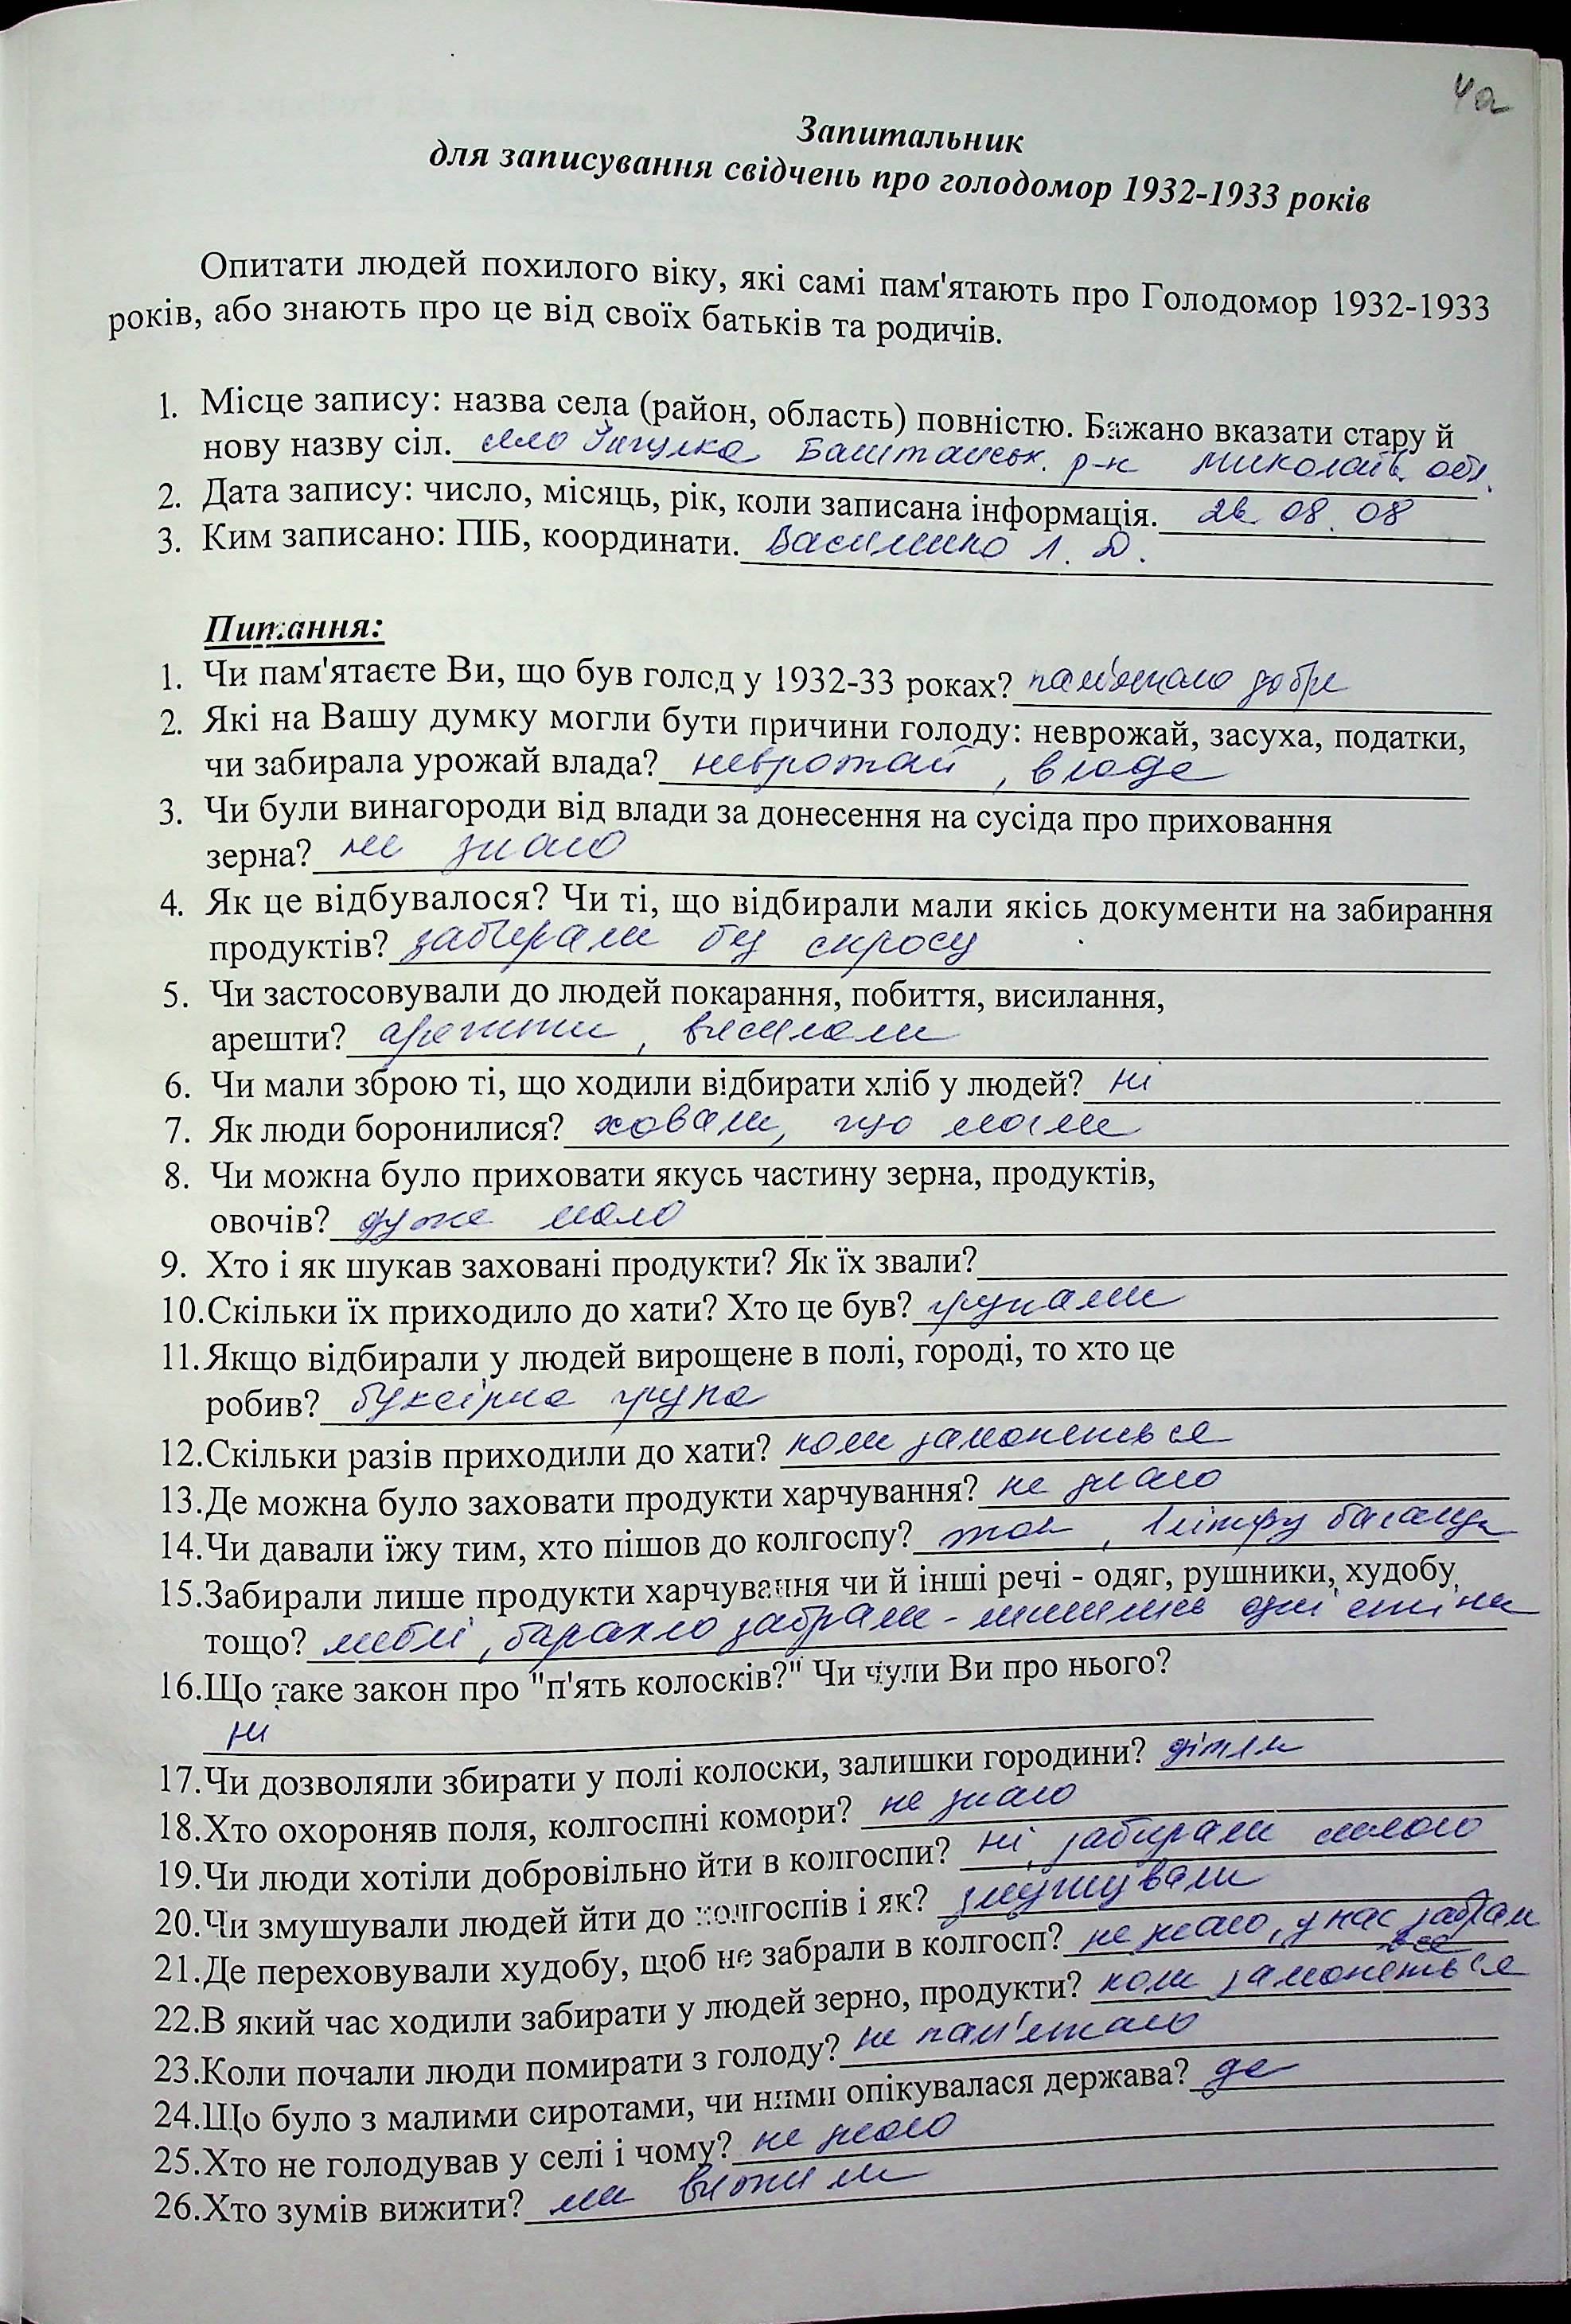 4а
Запитальник
для записування свідчень про голодомор 1932-1933 років
Опитати людей похилого віку, які самі пам'ятають про Голодомор 1932-1933
років, або знають про це від своїх батьків та родичів.
1. Місце запису: назва села (район, область) повністю. Бажано вказати стару й
нову назву сіл. село Інгулка Баштанськ. р-н Миколаїв. обл.
2. Дата запису: число, місяць, рік, коли записана інформація. 26.08.08
3. Ким записано: ПІБ, координати. Л. Д.
Питання:
1. Чи пам'ятаєте Ви, що був голод у 1932-33 роках? пам'ятаю добре
2. Які на Вашу думку могли бути причини голоду: неврожай, засуха, податки,
чи забирала урожай влада? неврожай, влада
3. Чи були винагороди від влади за донесення на сусіда про приховання
зерна? не знаю
4. Як це відбувалося? Чи ті, що відбирали мали якісь документи на забирання
продуктів? забирали без спросу
5. Чи застосовували до людей покарання, побиття, висилання,
арешти? арешти, висилали
6. Чи мали зброю ті, що ходили відбирати хліб у людей? ні
7. Як люди боронилися? ховали, що мали
8. Чи можна було приховати якусь частину зерна, продуктів,
овочів? дуже мало
9. Хто і як шукав заховані продукти? Як їх звали?
10.Скільки їх приходило до хати? Хто це був? групами
11.Якщо відбирали у людей вирощене в полі, городі, то хто це
робив? буксірна група
12.Скільки разів приходили до хати? коли заманеться
13.Де можна було заховати продукти харчування? не знаю
14.Чи давали їжу тим, хто пішов до колгоспу? 1 літру баланди
15.Забирали лише продукти харчування чи й інші речі - одяг, рушники, худобу
тощо? меблі, барахло забрали - лишились одні стіни
16.Що таке закон про "п'ять колосків?" Чи чули Ви про нього?
ні
17.Чи дозволяли збирати у полі колоски, залишки городини? дітям
18.Хто охороняв поля, колгоспні комори? не знаю
19.Чи люди хотіли добровільно йти в колгоспи? ні, забирали силою
20.Чи змушували людей йти до колгоспів і як? змушували
21.Де переховували худобу, щоб не забрали в колгосп? не знаю, у нас забрали
все
22.В який час ходили забирати у людей зерно, продукти? коли заманеться
23.Коли почали люди помирати з голоду? не пам'ятаю
24.Що було з малими сиротами, чи ними опікувалася держава? де
25.Хто не голодував у селі і чому? не знаю
26.Хто зумів вижити? ми вижили